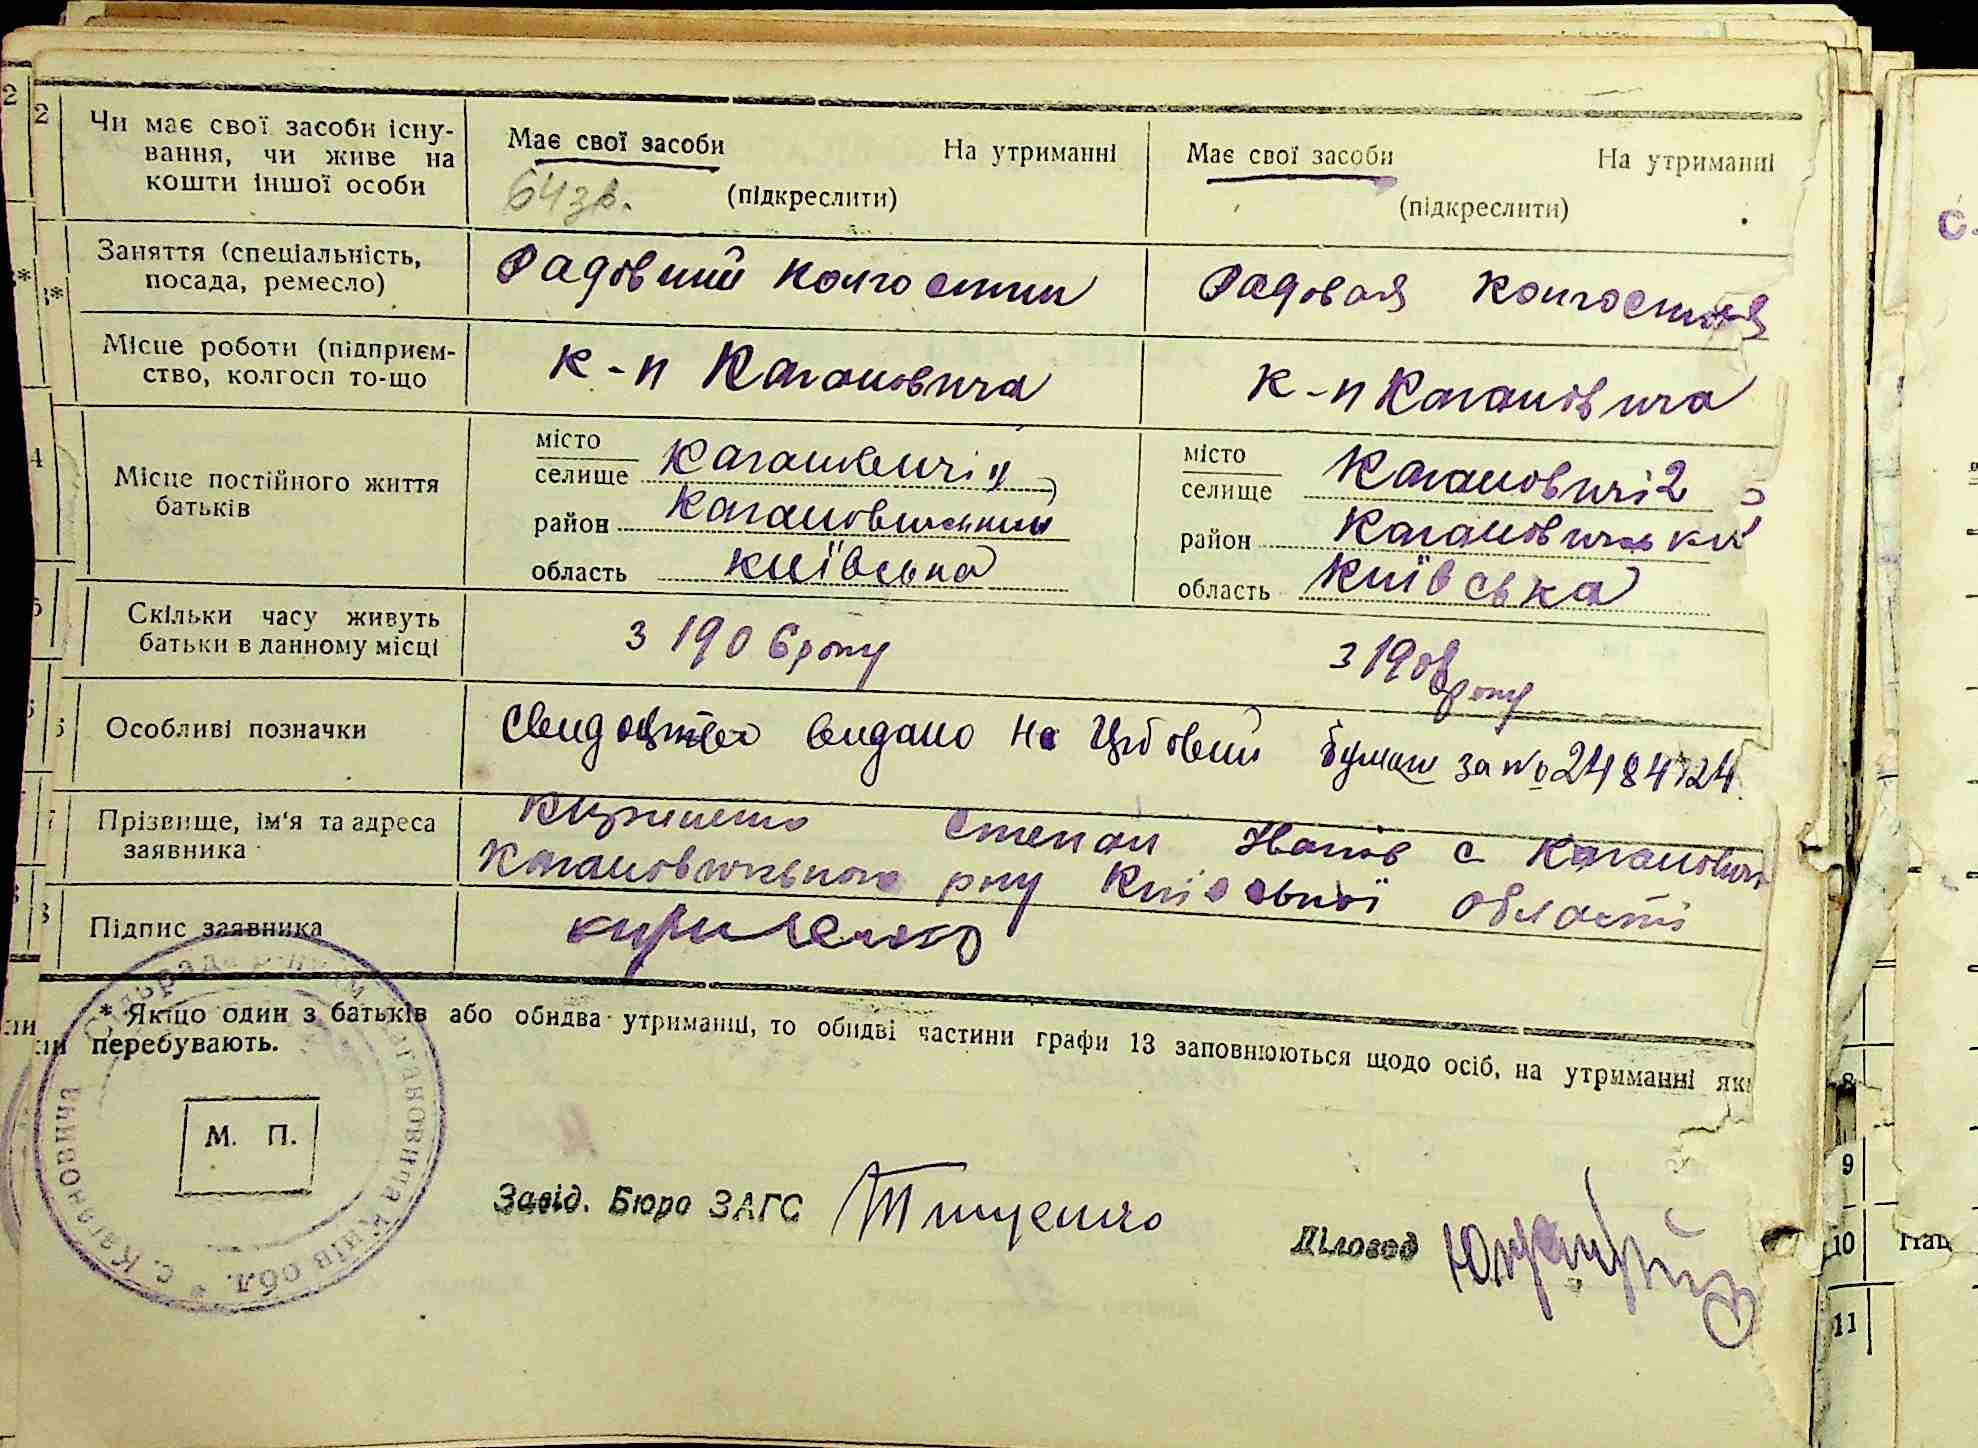 2
2
Чи має свої засоби існу-
вання, чи живе на
кошти іншої особи
Має свої засоби На утриманні
64зв.
(підкреслити)
Має свої засоби На утриманні
(підкреслити)
3*
Заняття (спеціальність,
посада, ремесло)
Радовий колгоспник
Радовая колгоспная
Місце роботи (підприєм-
ство, колгосп то-що
к-п Кагановича
к-п Кагановича
4
Місце постійного життя
батьків
місто
селище Кагановичі
район Кагановицький
область київська
місто
селище Кагановичі 2
район Кагановицький
область Київська
5
Скільки часу живуть
батьки в данному місці
з 1906 року
з 1908 року
6
Особливі позначки
Свидоцтво видано на Цібовий бумаги за № 2484724
7
Прізвище, ім'я та адреса
заявника
Кириленко Степан с Кагановичі
Кагановицького р-ну Київської області
8
Підпис заявника
кириленко
* Якщо один з батьків або обидва утриманці, то обидві частини графи 13 заповнюються щодо осіб, на утриманні яки
перебувають.
М. П.
с. Кагановича
Кагановича Київ обл.
Завід. Бюро ЗАГС Тищенко
Діловод
8
9
10
11